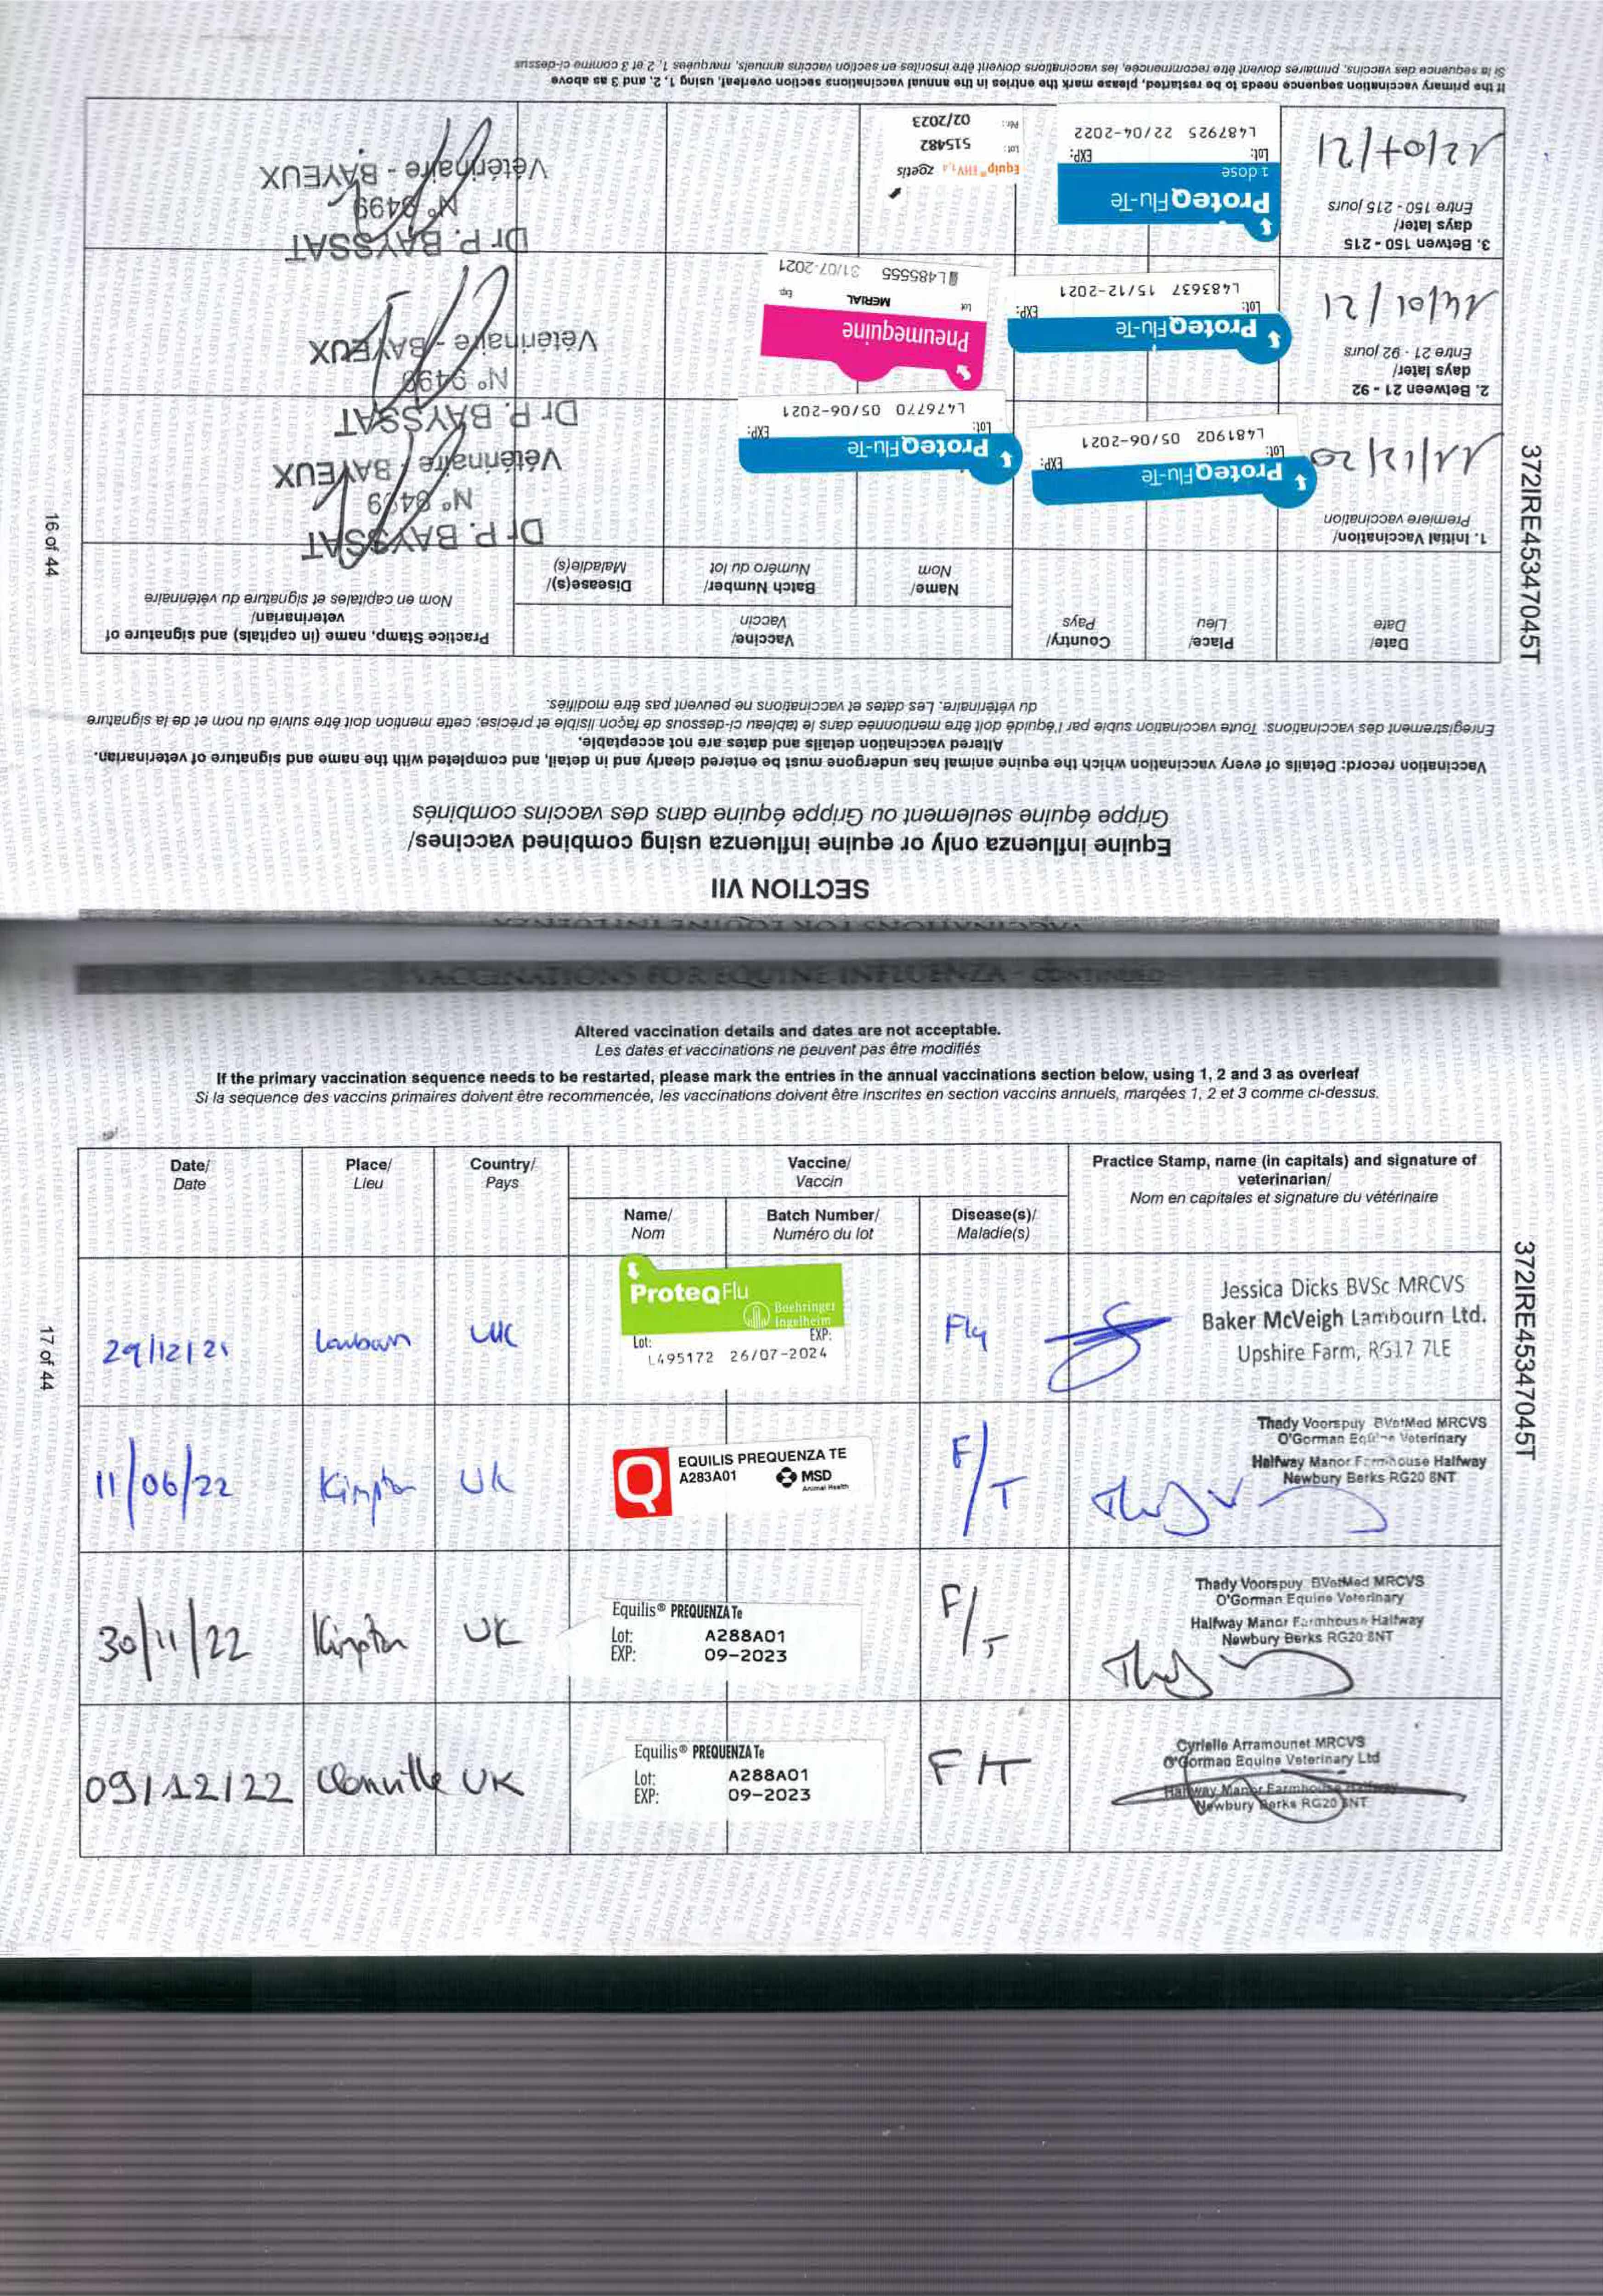 SECTION VII
Equine influenza only or equine influenza using combined vaccines/
Grippe équine seulement ou Grippe équine dans des vaccins combinés
Vaccination record: Details of every vaccination which the equine animal has undergone must be entered clearly and in detail, and completed with the name and signature of veterinarian.
Altered vaccination details and dates are not acceptable.
Enregistrement des vaccinations: Toute vaccination subie par l'équidé doit être mentionnée dans le tableau ci-dessous de façon lisible et précise; cette mention doit être suivie du nom et de la signature
du vétérinaire. Les dates et vaccinations ne peuvent pas être modifiés.
Date/
Date
Place/
Lieu
Country/
Pays
Vaccine/
Vaccin
Practice Stamp, name (in capitals) and signature of
veterinarian/
Nom en capitales et signature du vétérinaire
Name/
Nom
Batch Number/
Numéro du lot
Disease(s)/
Maladie(s)
1. Initial Vaccination/
Première vaccination
11/12/20
ProteqFlu-Te
Lot: EXP:
L481902 05/06-2021
ProteqFlu-Te
Lot: EXP:
L476770 05/06-2021
Dr P. BAYSSAT
N° 8499
Vétérinaire - BAYEUX
2. Between 21 - 92
days later/
Entre 21 - 92 jours
14/01/21
ProteqFlu-Te
Lot: EXP:
L483637 15/12-2021
Pneumequine
MERIAL
Lot Exp
L485555 31/07-2021
Dr P. BAYSSAT
N° 8499
Vétérinaire - BAYEUX
3. Betwen 150 - 215
days later/
Entre 150 - 215 jours
12/07/21
ProteqFlu-Te
1 dose
Lot: EXP:
L487925 22/04-2022
Equip® EHV1,4 zoetis
Lot: 515482
02/2023
Dr P. BAYSSAT
N° 8499
Vétérinaire - BAYEUX
If the primary vaccination sequence needs to be restarted, please mark the entries in the annual vaccinations section overleaf, using 1, 2, and 3 as above
Si la sequence des vaccins, primaires doivent être recommencée, les vaccinations doivent être inscrites en section vaccins annuels, marquées 1, 2 et 3 comme ci-dessus
372IRE45347045T
16 of 44
VACCINATIONS FOR EQUINE INFLUENZA
VACCINATIONS FOR EQUINE INFLUENZA - CONTINUED
Altered vaccination details and dates are not acceptable.
Les dates et vaccinations ne peuvent pas être modifiés
If the primary vaccination sequence needs to be restarted, please mark the entries in the annual vaccinations section below, using 1, 2 and 3 as overleaf
Si la sequence des vaccins primaires doivent être recommencée, les vaccinations doivent être inscrites en section vaccins annuels, marqées 1, 2 et 3 comme ci-dessus.
Date/
Date
Place/
Lieu
Country/
Pays
Vaccine/
Vaccin
Practice Stamp, name (in capitals) and signature of
veterinarian/
Nom en capitales et signature du vétérinaire
Name/
Nom
Batch Number/
Numéro du lot
Disease(s)/
Maladie(s)
29/12/21
UK
ProteqFlu
Boehringer
Ingelheim
Lot: EXP:
L495172 26/07-2024
Jessica Dicks BVSc MRCVS
Baker McVeigh Lambourn Ltd.
Upshire Farm, RG17 7LE
11/06/22
Kimpton
UK
EQUILIS PREQUENZA TE
A283A01 MSD
Animal Health
F/T
Thady Voorspuy BVetMed MRCVS
O'Gorman Equine Veterinary
Halfway Manor Farmhouse Halfway
Newbury Berks RG20 8NT
30/11/22
Kimpton
UK
Equilis® PREQUENZA Te
Lot: A288A01
EXP: 09-2023
F/T
Thady Voorspuy BVetMed MRCVS
O'Gorman Equine Veterinary
Halfway Manor Farmhouse Halfway
Newbury Berks RG20 8NT
09/12/22
UK
Equilis® PREQUENZA Te
Lot: A288A01
EXP: 09-2023
FT
Cyrielle Arramounet MRCVS
O'Gorman Equine Veterinary Ltd
Halfway Manor Farmhouse Halfway
Newbury Berks RG20 8NT
372IRE45347045T
17 of 44